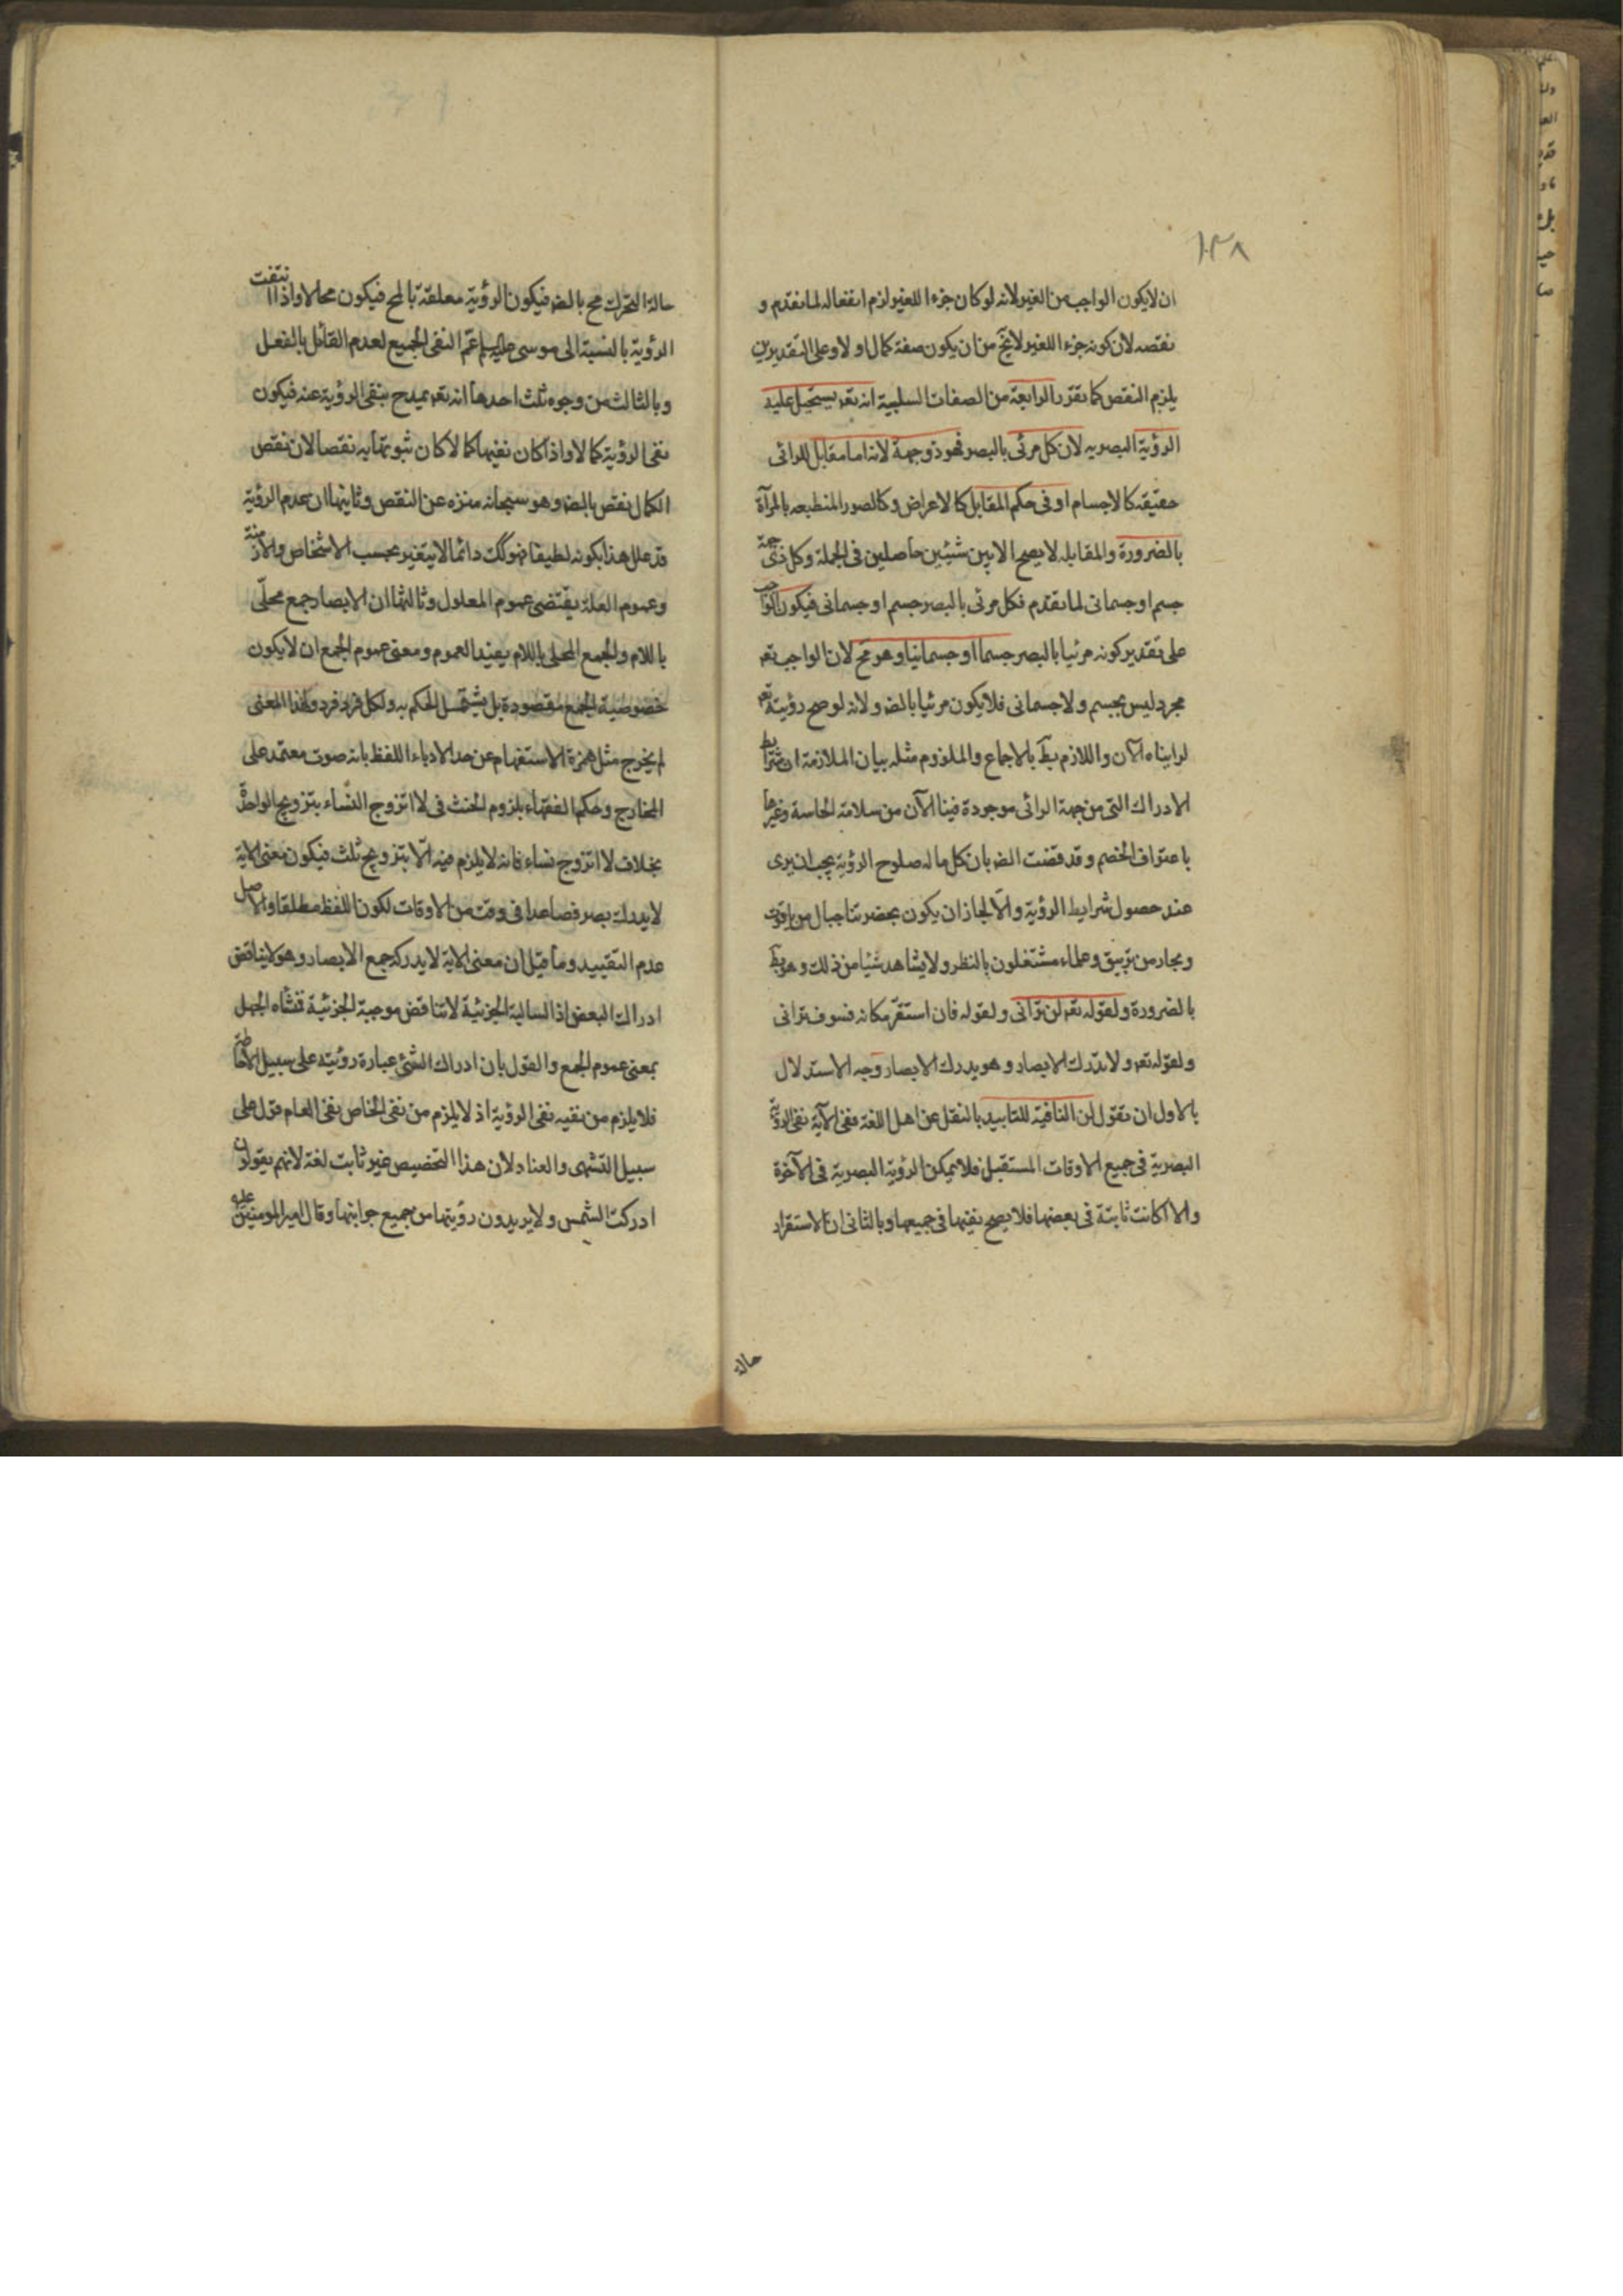 ١٣٨
ان لا يكون الواجب من الغير لانه لو كان جزءا للغير لزم انفعاله لما تقدم و
نقصه لان كونه جزءا للغير لا يخ من ان يكون صفة كمال او لا وعلى التقديرين
يلزم النقص كما تقرر الرابعة من الصفات السلبية انه تعه يستحيل عليه
الرؤية البصريه لان كل مرئى بالبصر فهو ذو جهة لانه اما مقابل للرائى
حقيقه كالاجسام او فى حكم المقابل كالاعراض وكالصور المنطبعه بالمرآة
بالضرورة والمقابله لا يصح الا بين شيئين حاصلين فى الجملة وكل ذى جهة
جسم او جسمانى لما تقدم فكل مرئى بالبصر جسم او جسمانى فيكون الواجب
على تقدير كونه مرئيا بالبصر جسما او جسمانيا وهو مح لان الواجب تعه
مجرد ليس بجسم ولا جسمانى فلا يكون مرئيا بالضه ولانه لو صح رؤيته تعه
لرايناه الآن واللازم بط بالاجماع والملزوم مثله بيان الملازمة ان شرايط
الادراك التى من جهة الرائى موجودة فينا الآن من سلامة الحاسة وغيرها
باعتراف الخصم وقد قضت الضه بان كل ما له صلوح الرؤية يجب ان يرى
عند حصول شرايط الرؤية والا لجاز ان يكون بحضرتنا جبال من ياقوت
وبحار من زيبق وعلماء مشتغلون بالنظر ولا يشاهد شيئا من ذلك وهو بط
بالضرورة ولقوله تعه لن ترانى ولقوله فان استقر مكانه فسوف ترانى
ولقوله تعه ولا تدرك الابصار وهو يدرك الابصار وجه الاستدلال
بالاول ان تقول لن النافية للتابيد بالنقل عن اهل اللغة ففى الآية نفى الرؤية
البصرية فى جميع الاوقات المستقبل فلا يمكن الرؤية البصرية فى الآخرة
والا كانت ثابتة فى بعضها فلا يصح نفيها فى جميعها وبالثانى ان الاستقرار
حالة
حالة التحرك مح بالضه فيكون الرؤية معلقة بالمح فيكون محالا واذا انتفت
الرؤية بالنسبة الى موسى عليه السلام عم النفى الجميع لعدم القائل بالفصل
وبالثالث من وجوه ثلث احدها انه تعه يمدح بنفى الرؤية عنه فيكون
نفى الرؤية كمالا واذا كان نفيها كمالا كان ثبوتها به نقصا لان نقص
الكمال نقص بالضه وهو سبحانه منزه عن النقص وثانيها ان عدم الرؤية
قد علل هذا بكونه لطيفا فهو كك دائما لا يتغير بحسب الاشخاص والازمنة
وعموم العلة يقتضى عموم المعلول وثالثها ان الابصار جمع محلى
باللام والجمع المحلى باللام يفيد العموم ومعنى عموم الجمع ان لا يكون
خصوصية الجمع مقصودة بل يشتمل الحكم به ولكل فرد فرد ولهذا المعنى
لم يخرج مثل همزة الاستفهام عن حد الادباء اللفظ بانه صوت معتمد على
المخارج وحكم الفقهاء بلزوم الحنث فى لا اتزوج النساء بتزويج الواحدة
بخلاف لا اتزوج نساء فانه لا يلزم فيه الا بتزويج ثلث فيكون معنى الاية
لا يدرك بصر فصاعدا فى وقت من الاوقات لكون اللفظ مطلقا والاصل
عدم التقييد وما قيل ان معنى الاية لا يدركه جمع الابصار وهو لا يناقض
ادراك البعض اذ السالبة الجزئية لا تناقض موجبة الجزئية فمنشاه الجهل
بمعنى عموم الجمع والقول بان ادراك الشئ عبارة رؤيته على سبيل الاحاطة
فلا يلزم من نفيه نفى الرؤية اذ لا يلزم من نفى الخاص نفى العام قول على
سبيل التشهى والعناد لان هذا التخصيص غير ثابت لغة لانهم يقولون
ادركت الشمس ولا يريدون رؤيتها من جميع جوانبها وقال امير المومنين عليه